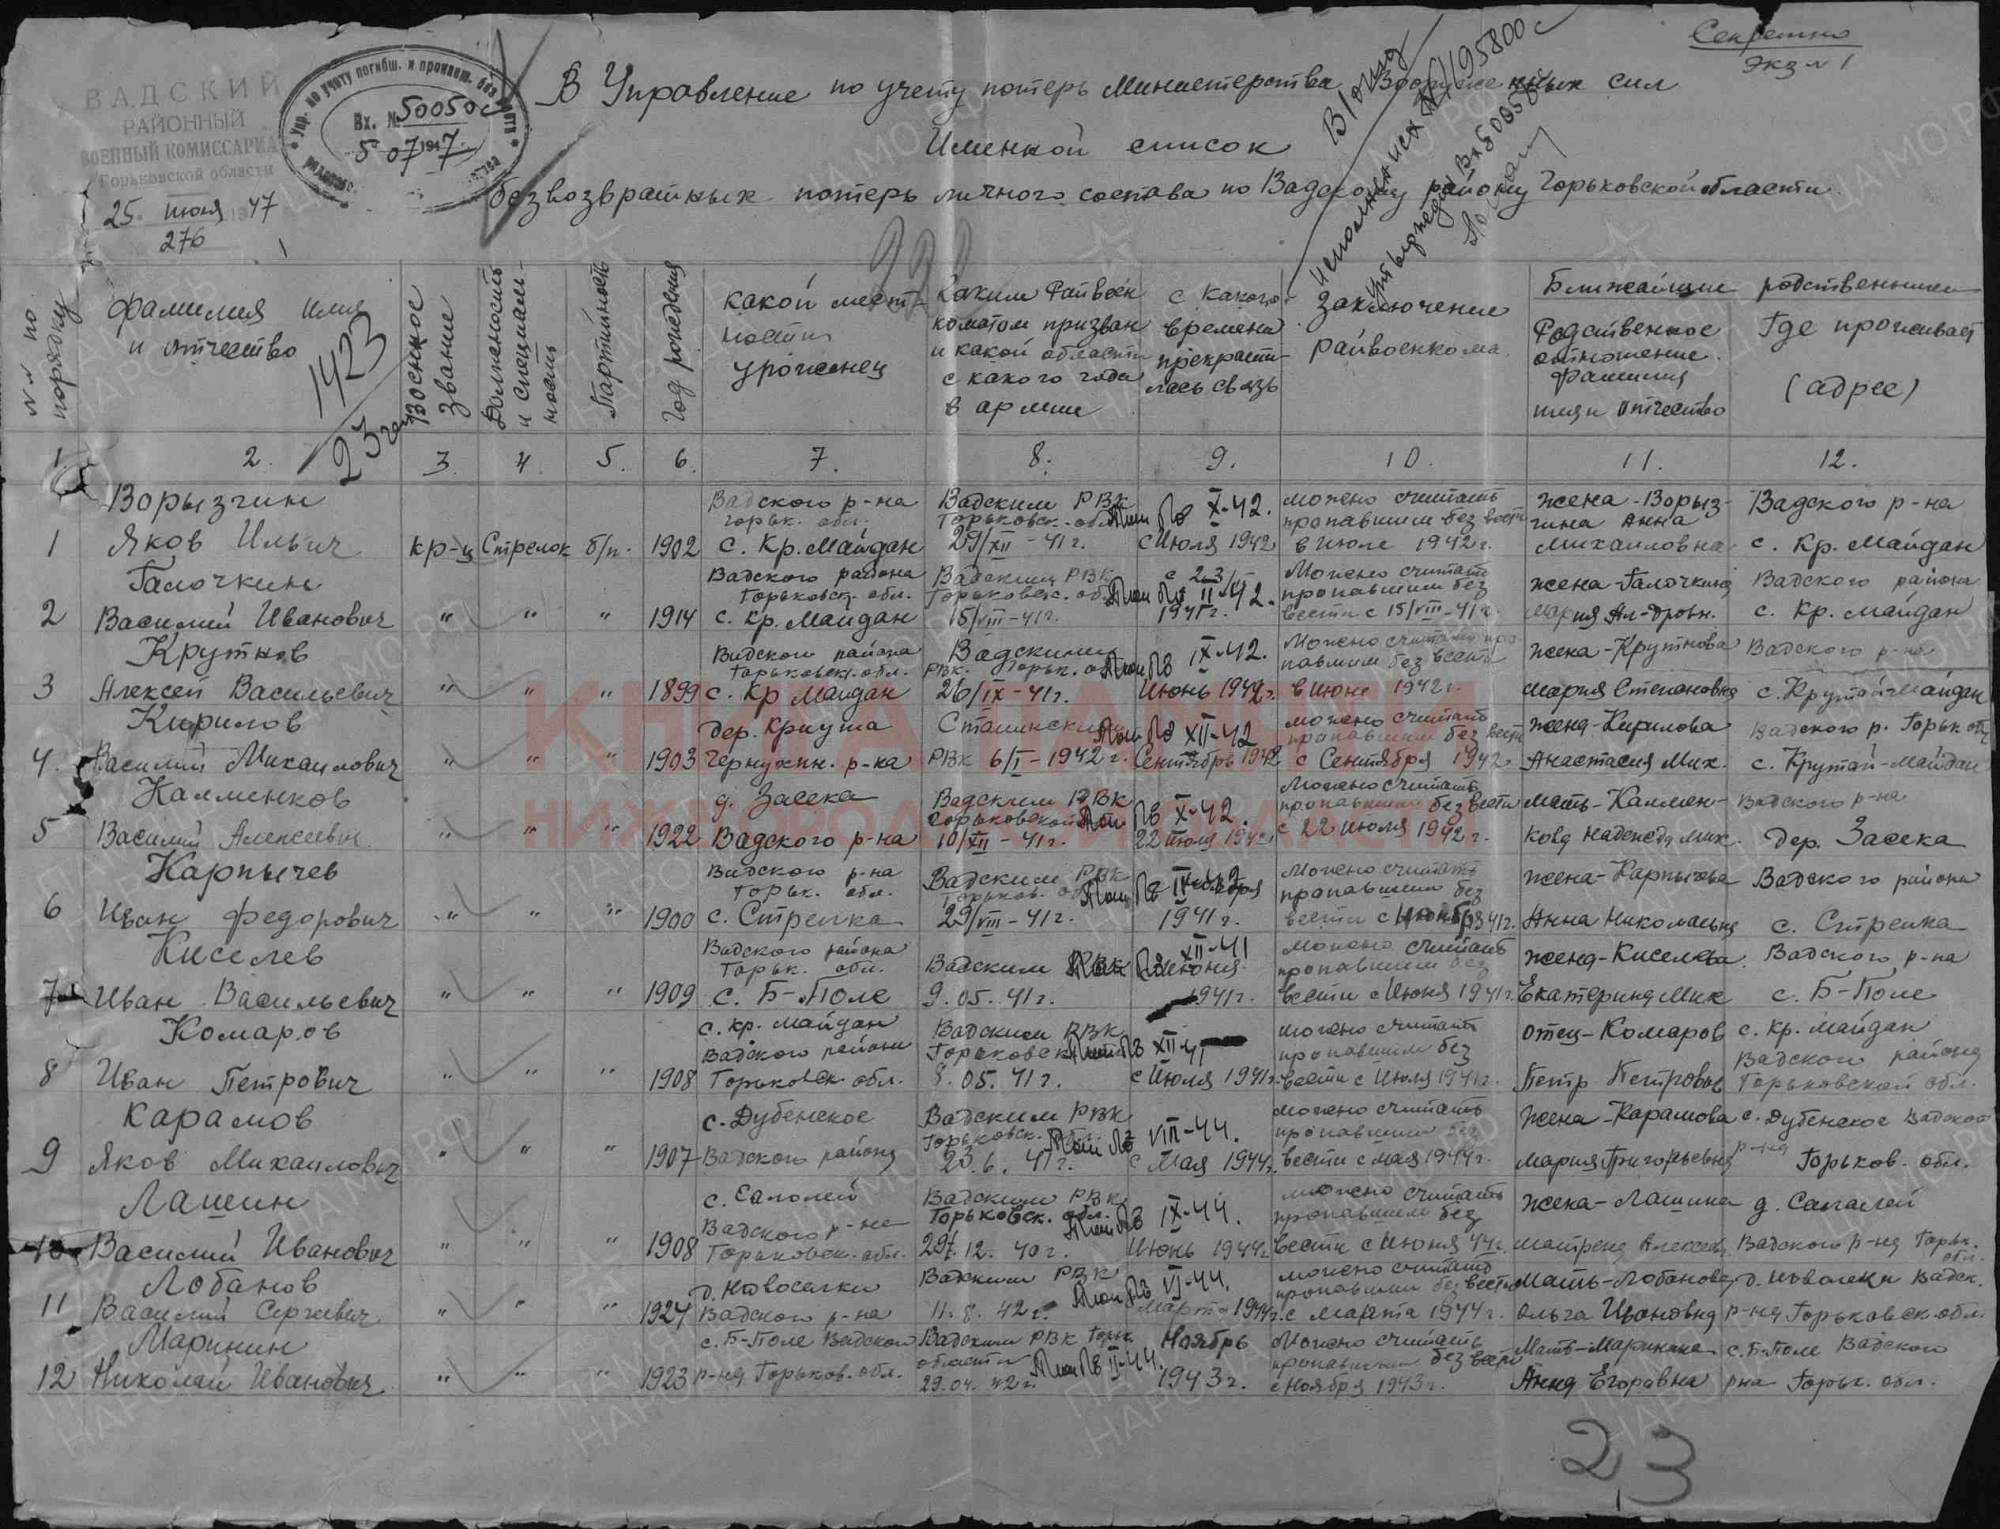 Секретно
Экз № 1
ВАДСКИЙ
РАЙОННЫЙ
ВОЕННЫЙ КОМИССАРИАТ
Горьковской области
25 июня 1947
276
Упр. по учету погибш. и пропавш. без вести
Вх. № 50050с
5 07 1947 г.
В Управление по учету потерь Министерства Вооруженных сил
Именной список
безвозвратных потерь личного состава по Вадскому району Горьковской области
№ № по порядку
Фамилия имя и отчество
Военное звание
Должность и специальность
Партийность
Год рождения
какой местности уроженец
Каким Райвоенкоматом призван и какой области с какого года в армии
с какого времени прекратилась связь
Заключение райвоенкома
Ближайшие родственники
Родственное отношение фамилия имя и отчество
Где проживает (адрес)
1423
23 чел
1 2. 3. 4. 5. 6. 7. 8. 9. 10. 11. 12.
1 Ворызгин Яков Ильич кр-ц Стрелок б/п. 1902 Вадского р-на Горьк. обл. с. Кр. Майдан Вадским РВК Горьковск. обл. 29/XII-41г. X-42. с Июля 1942 можно считать пропавшим без вести в июле 1942г. жена-Ворызгина Анна Михайловна Вадского р-на с. Кр. Майдан
2 Галочкин Василий Иванович " " " 1914 Вадского района Горьковск. обл. с. Кр. Майдан Вадским РВК Горьковск. обл. 15/VIII-41г. II-42. 1941г. Можно считать пропавшим без вести с 15/VIII-41г. жена-Галочкина Мария Ал-дровн. Вадского района с. Кр. Майдан
3 Крутков Алексей Васильевич " " " 1899 Вадского района Горьковск. обл. с. Кр Майдан Вадским РВК. Горьк. 26/IX-41г. IX-42. Июнь 1942г. Можно считать пропавшим без вести в июне 1942г. жена-Круткова Мария Степановна Вадского р-на с. Крутой-Майдан
4. Кирилов Василий Михайлович " " " 1903 дер. Криуша Чернухин. р-на Сталинским РВК 6/I-1942г. XII-42 Сентябрь 1942 можно считать пропавшим без вести с Сентября 1942 жена-Кирилова Анастасия Мих. Вадского р. Горьк обл с. Крутой-Майдан
5 Калменков Василий Алексеевич " " " 1922 д. Засека Вадского р-на Вадским РВК Горьковской 10/XII-41г. X-42. 22 июля 1942 Можно считать пропавшим без вести с 22 июля 1942г. мать-Калменкова Надежда Мих. Вадского р-на дер. Засека
6 Карпычев Иван Федорович " " " 1900 Вадского р-на Горьк. обл. с. Стрелка Вадским РВК Горьков. 29/VIII-41г. 1941г. Можно считать пропавшим без вести жена-Карпычева Анна Николаевна Вадского района с. Стрелка
7 Киселев Иван Васильевич " " " 1909 Вадского района Горьк. обл. с. Б-Поле Вадским РВК 9.05.41г. XII-41 июня 1941г. можно считать пропавшим без вести с Июня 1941г. жена-Киселева Екатерина Мих Вадского р-на с. Б-Поле
8 Комаров Иван Петрович " " " 1908 с. Кр. Майдан Вадского района Горьковск обл. Вадским РВК Горьковск 8.05.41г. XII-41 с Июля 1941г. можно считать пропавшим без вести с Июля 1941г. отец-Комаров Петр Петрович с. Кр. Майдан Вадского района Горьковской обл.
9 Карамов Яков Михайлович " " " 1907 с. Дубенское Вадского района Вадским РВК Горьковск. 23.6.41г. VIII-44. с Мая 1944г. можно считать пропавшим без вести с мая 1944г. Жена-Карамова Мария Григорьевна с. Дубенское Вадского р-на Горьков. обл.
10 Лашин Василий Иванович " " " 1908 Вадского р-на Горьковск. обл. Вадским РВК Горьковск. обл. 12.40г. IX-44. Июнь 1944г. можно считать пропавшим без вести с Июня 44г. жена-Лашина Матрена Алексеев. Вадского р-на Горьк. обл.
11 Лобанов Василий Сергеевич " " " 1924 д. Новоселки Вадского р-на РВК 11.8.42г. VI-44. Марта 1944г. можно считать пропавшим без вести с марта 1944г. Мать-Лобанова Ольга Ивановна д. Новоселки Вадск. р-на Горьковск. обл.
12 Маринин Николай Иванович " " " 1923 с. Б-Поле Вадского р-на Горьков. обл. Вадским РВК Горьк области 29.04.42г. II-44. Ноябрь 1943г. Можно считать пропавшим без вести с Ноября 1943г. Мать-Маринина Анна Егоровна с. Б-Поле Вадского р-на Горьк. обл.
23
КНИГА ПАМЯТИ
НИЖЕГОРОДСКОЙ ОБЛАСТИ